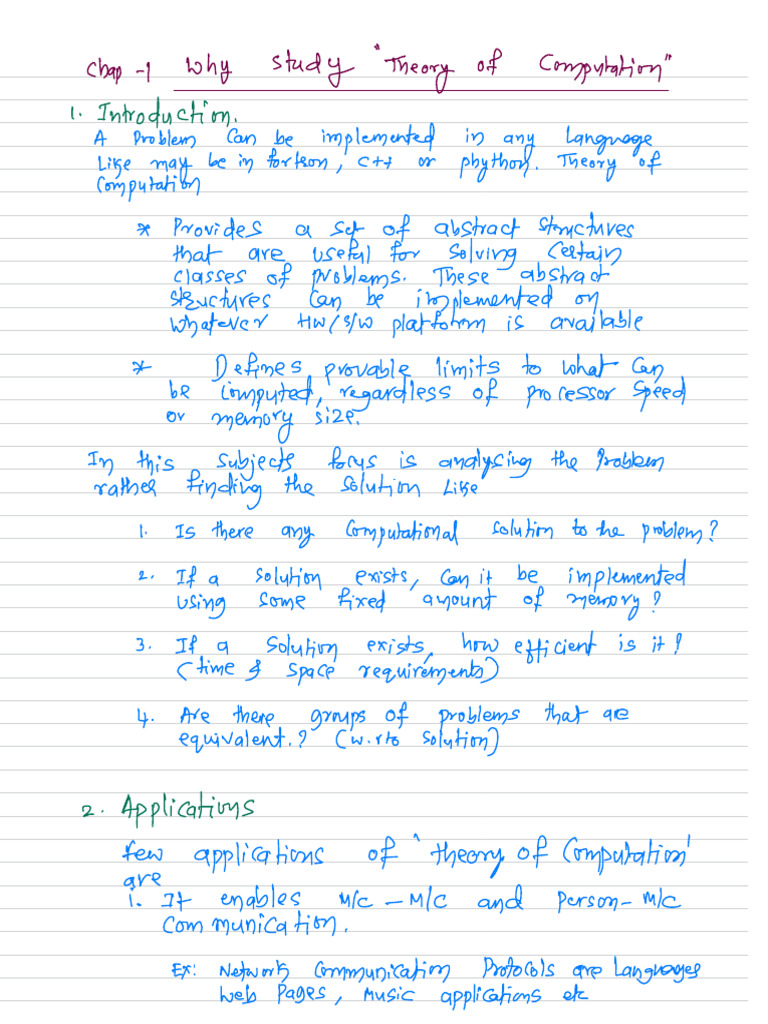 Chap -1 Why study "Theory of Computation"
1. Introduction.
A Problem Can be implemented in any Language
Like may be in fortron, C++ or phython. Theory of
Computation
* Provides a set of abstract structures
that are useful for solving Certain
classes of problems. These abstract
structures Can be implemented on
whatever HW/S/W platform is available
* Defines provable limits to what Can
be Computed, regardless of processor speed
or memory size.
In this subjects focus is analysing the Problem
rather finding the solution Like
1. Is there any Computational solution to the problem?
2. If a solution exists, Can it be implemented
using some fixed amount of memory?
3. If a solution exists, how efficient is it?
(time & space requirements)
4. Are there groups of problems that are
equivalent.? (w.r.to solution)
2. Applications
few applications of 'theory of Computation'
are
1. It enables M/C - M/C and Person- M/C
Communication.
Ex: Network Communication Protocols are Languages
Web Pages, Music applications etc